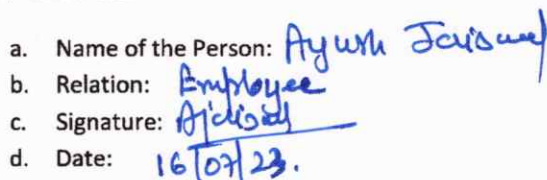 a. Name of the Person: Ayush Jaiswal
b. Relation: Employee
c. Signature: AJaiswal
d. Date: 16/07/23.